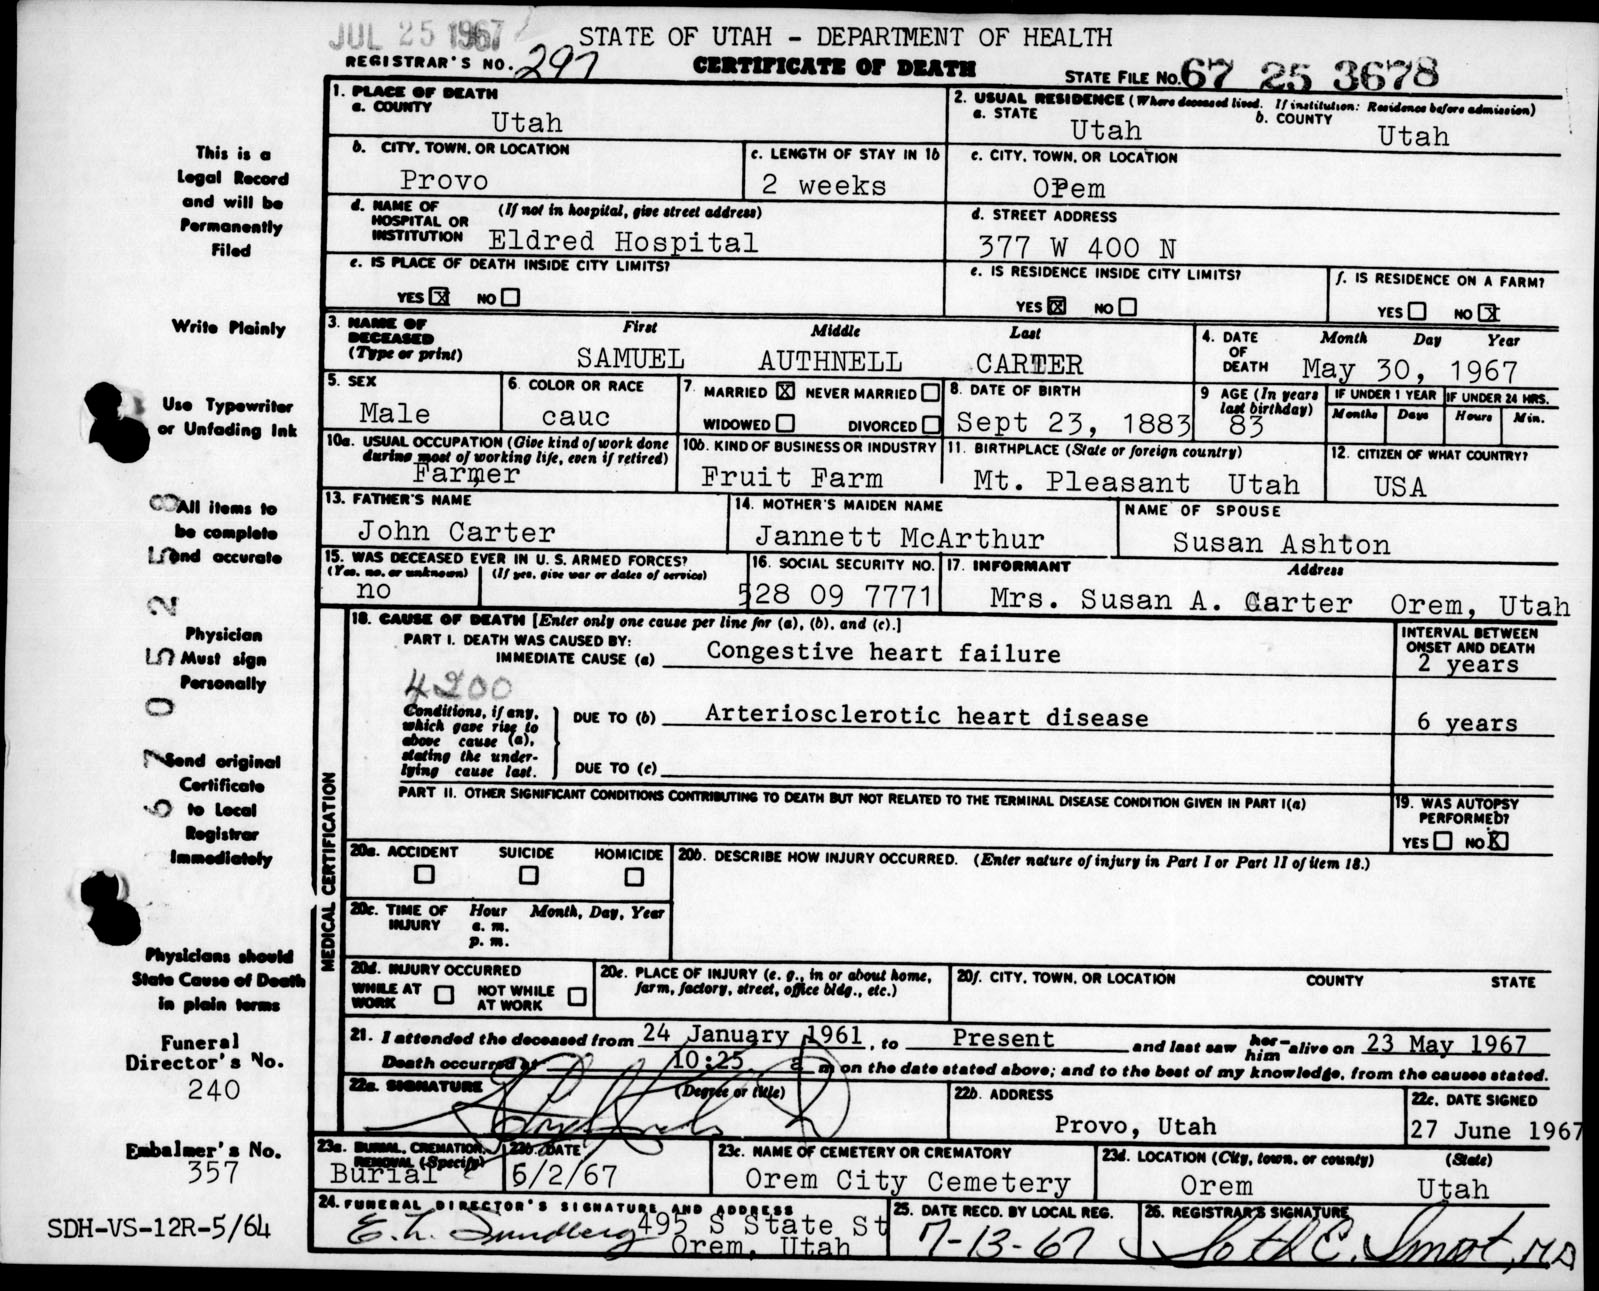 JUL 25 1967
STATE OF UTAH - DEPARTMENT OF HEALTH
REGISTRAR'S NO. 297
CERTIFICATE OF DEATH
STATE FILE NO. 67 25 3678
This is a
Legal Record
and will be
Permanently
Filed
Write Plainly
Use Typewriter
or Unfading Ink
All items to
be complete
and accurate
Physician
Must sign
Personally
Send original
Certificate
to Local
Registrar
Immediately
Physicians should
State Cause of Death
in plain terms
Funeral
Director's No.
240
Embalmer's No.
357
SDH-VS-12R-5/64
1. PLACE OF DEATH
a. COUNTY
Utah
2. USUAL RESIDENCE (Where deceased lived. If institution: Residence before admission)
a. STATE
Utah
b. COUNTY
Utah
b. CITY, TOWN, OR LOCATION
Provo
c. LENGTH OF STAY IN 1b
2 weeks
c. CITY, TOWN, OR LOCATION
Orem
d. NAME OF HOSPITAL OR INSTITUTION
(If not in hospital, give street address)
Eldred Hospital
d. STREET ADDRESS
377 W 400 N
e. IS PLACE OF DEATH INSIDE CITY LIMITS?
YES X NO
e. IS RESIDENCE INSIDE CITY LIMITS?
YES X NO
f. IS RESIDENCE ON A FARM?
YES NO X
3. NAME OF DECEASED (Type or print)
First Middle Last
SAMUEL AUTHNELL CARTER
4. DATE OF DEATH
Month Day Year
May 30, 1967
5. SEX
Male
6. COLOR OR RACE
cauc
7. MARRIED X NEVER MARRIED
WIDOWED DIVORCED
8. DATE OF BIRTH
Sept 23, 1883
9 AGE (In years last birthday)
83
IF UNDER 1 YEAR
Months Days
IF UNDER 24 HRS.
Hours Min.
10a. USUAL OCCUPATION (Give kind of work done during most of working life, even if retired)
Farmer
10b. KIND OF BUSINESS OR INDUSTRY
Fruit Farm
11. BIRTHPLACE (State or foreign country)
Mt. Pleasant Utah
12. CITIZEN OF WHAT COUNTRY?
USA
13. FATHER'S NAME
John Carter
14. MOTHER'S MAIDEN NAME
Jannett McArthur
NAME OF SPOUSE
Susan Ashton
15. WAS DECEASED EVER IN U. S. ARMED FORCES?
(Yes, no, or unknown) (If yes, give war or dates of service)
no
16. SOCIAL SECURITY NO.
528 09 7771
17. INFORMANT Address
Mrs. Susan A. Carter Orem, Utah
MEDICAL CERTIFICATION
18. CAUSE OF DEATH [Enter only one cause per line for (a), (b), and (c).]
PART I. DEATH WAS CAUSED BY:
IMMEDIATE CAUSE (a) Congestive heart failure
INTERVAL BETWEEN ONSET AND DEATH
2 years
4200
Conditions, if any, which gave rise to above cause (a), stating the underlying cause last.
DUE TO (b) Arteriosclerotic heart disease
6 years
DUE TO (c)
PART II. OTHER SIGNIFICANT CONDITIONS CONTRIBUTING TO DEATH BUT NOT RELATED TO THE TERMINAL DISEASE CONDITION GIVEN IN PART I(a)
19. WAS AUTOPSY PERFORMED?
YES NO X
20a. ACCIDENT SUICIDE HOMICIDE
20b. DESCRIBE HOW INJURY OCCURRED. (Enter nature of injury in Part I or Part II of item 18.)
20c. TIME OF INJURY
Hour Month, Day, Year
a. m.
p. m.
20d. INJURY OCCURRED
WHILE AT WORK NOT WHILE AT WORK
20e. PLACE OF INJURY (e. g., in or about home, farm, factory, street, office bldg., etc.)
20f. CITY, TOWN, OR LOCATION COUNTY STATE
21. I attended the deceased from 24 January 1961, to Present and last saw her/him alive on 23 May 1967
Death occurred at 10:25 a m on the date stated above; and to the best of my knowledge, from the causes stated.
22a. SIGNATURE (Degree or title)
22b. ADDRESS
Provo, Utah
22c. DATE SIGNED
27 June 1967
23a. BURIAL, CREMATION, REMOVAL (Specify)
Burial
22b. DATE
6/2/67
23c. NAME OF CEMETERY OR CREMATORY
Orem City Cemetery
23d. LOCATION (City, town, or county) (State)
Orem Utah
24. FUNERAL DIRECTOR'S SIGNATURE AND ADDRESS
E. L. Sundberg 495 S State St
Orem, Utah
25. DATE RECD. BY LOCAL REG.
7-13-67
26. REGISTRAR'S SIGNATURE
Seth E. Smoot, MD
67 052558